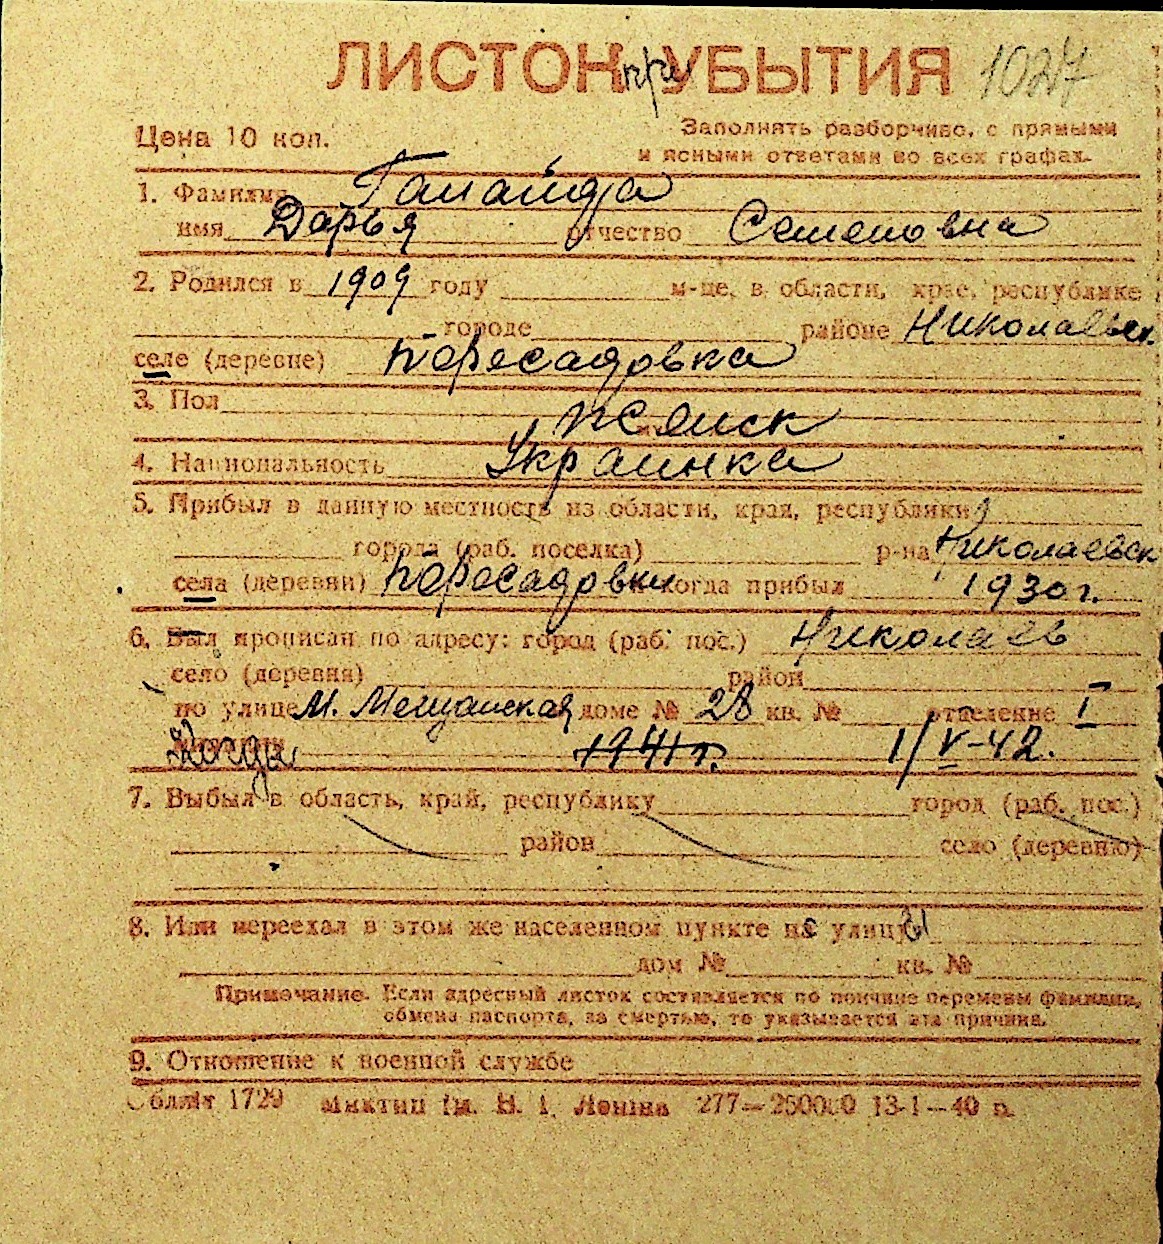 ЛИСТОК при УБЫТИЯ 1027
Цена 10 коп.
Заполнять разборчиво, с прямыми
и ясными ответами во всех графах.
1. Фамилия Ганайда
имя Дарья отчество Семеновна
2. Родился в 1909 году м-це, в области, крае, республике
городе районе Николаевск.
селе (деревне) Пересадовка
3. Пол женск
4. Национальность Украинка
5. Прибыл в данную местность из области, края, республики
города (раб. поселка) р-на Николаевск
села (деревни) Пересадовки когда прибыл 1930 г.
6. Был прописан по адресу: город (раб. пос.) Николаев
село (деревня) район
по улице М. Мещанская доме № 28 кв. № отделение I
Когда 1941 г. 1/V-42.
7. Выбыл в область, край, республику город (раб. пос.)
район село (деревню)
8. Или переехал в этом же населенном пункте с улицы
дом № кв. №
Примечание. Если адресный листок составляется по причине перемены фамилии,
обмена паспорта, за смертью, то указывается эта причина.
9. Отношение к военной службе
Обллит 1729 Миктип Им. В. И. Ленина 277—250000 13-1—40 г.